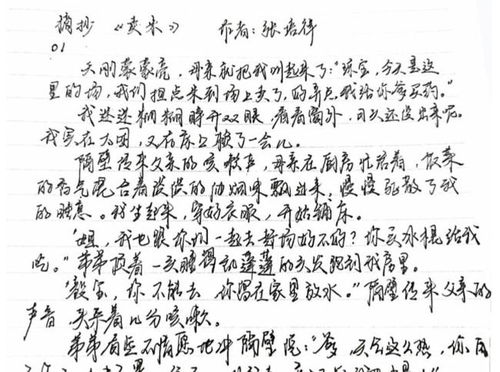 摘抄 《卖米》 作者：张培祥
01
天刚蒙蒙亮，母亲就把我叫起来了："琼宝，今天是这
里的场，我们担点米到场上卖了，好弄点钱给你爹买药。"
我迷迷糊糊睁开双眼，看看窗外，日头还没出来呢。
我实在太困，又在床上赖了一会儿。
隔壁传来父亲的咳嗽声，母亲在厨房忙活着，饭菜
的香气混合着淡淡的油烟味飘过来，慢慢驱散了我
的睡意。我坐起来，穿好衣服，开始铺床。
"姐，我也跟你们一起去赶场好不好？你买冰棍给我
吃。"弟弟顶着一头睡得乱蓬蓬的头发跑到我房里。
"毅宝，你不能去，你留在家里放水。"隔壁传来父亲的
声音，夹杂着几分咳嗽。
弟弟有些不情愿地冲隔壁说："爹，天气这么热，你自